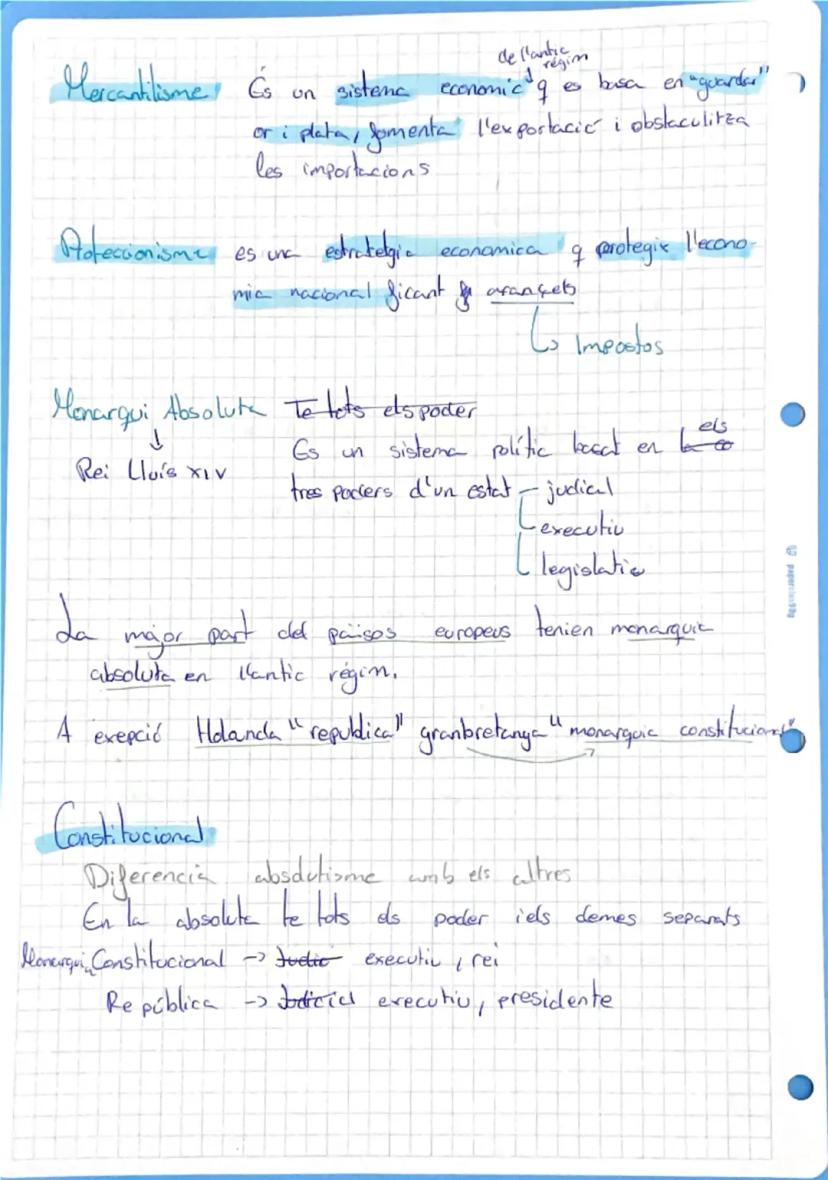 de l'antic
régim
Mercantilisme És un sistema economic q es basa en "guardar"
or i plata, fomenta l'exportació i obstaculitza
les importacions
Proteccionisme es una estrategia economica q protegix l'econo-
mia nacional ficant arançels
↳ Impostos
Monarqui Absoluta Te tots els poder
↓
Rei Lluís XIV
Es un sistema polític basat en els
tres poders d'un estat - judical
executiu
legislatiu
La major part del països europeus tenien monarquia
absoluta en l'antic régim.
A exepció Holanda "republica" granbretanya "monarquia constitucional"
Constitucional
Diferencia absolutisme amb els altres
En la absoluta te tots els poder i els demes separats
Monarqui Constitucional -> Judic executiu, rei
República -> Judicial executiu, presidente
paperclass 90g